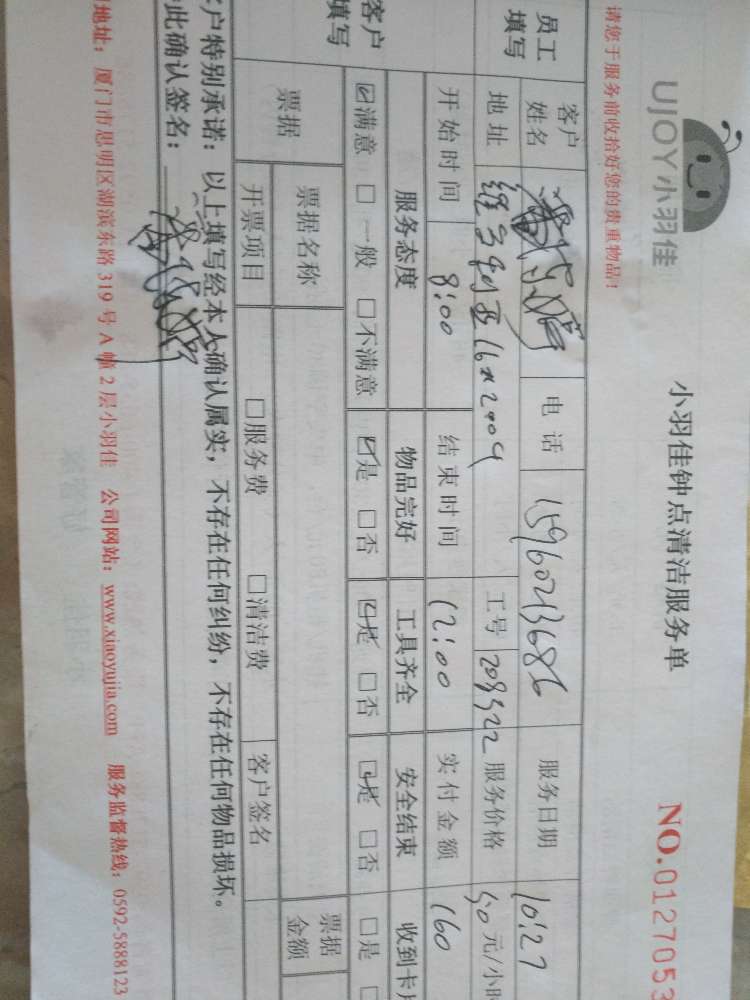 UJOY小羽佳
小羽佳钟点清洁服务单
NO.0127053
请您于服务前收拾好您的贵重物品!
员工填写
客户姓名
电话 15960213686
服务日期 10:27
地址 16#2904
工号 209322
服务价格 50元/小时
开始时间 8:00
结束时间 12:00
实付金额 160
客户填写
服务态度 物品完好 工具齐全 安全结束 收到卡片
☑满意 □一般 □不满意 ☑是 □否 ☑是 □否 ☑是 □否 □是
票据 票据名称 票据金额
开票项目 □服务费 □清洁费 客户签名
客户特别承诺:以上填写经本人确认属实,不存在任何纠纷,不存在任何物品损坏。
此确认签名:
地址:厦门市思明区湖滨东路319号A幢2层小羽佳 公司网站:www.xiaoyujia.com 服务监督热线:0592-5888123